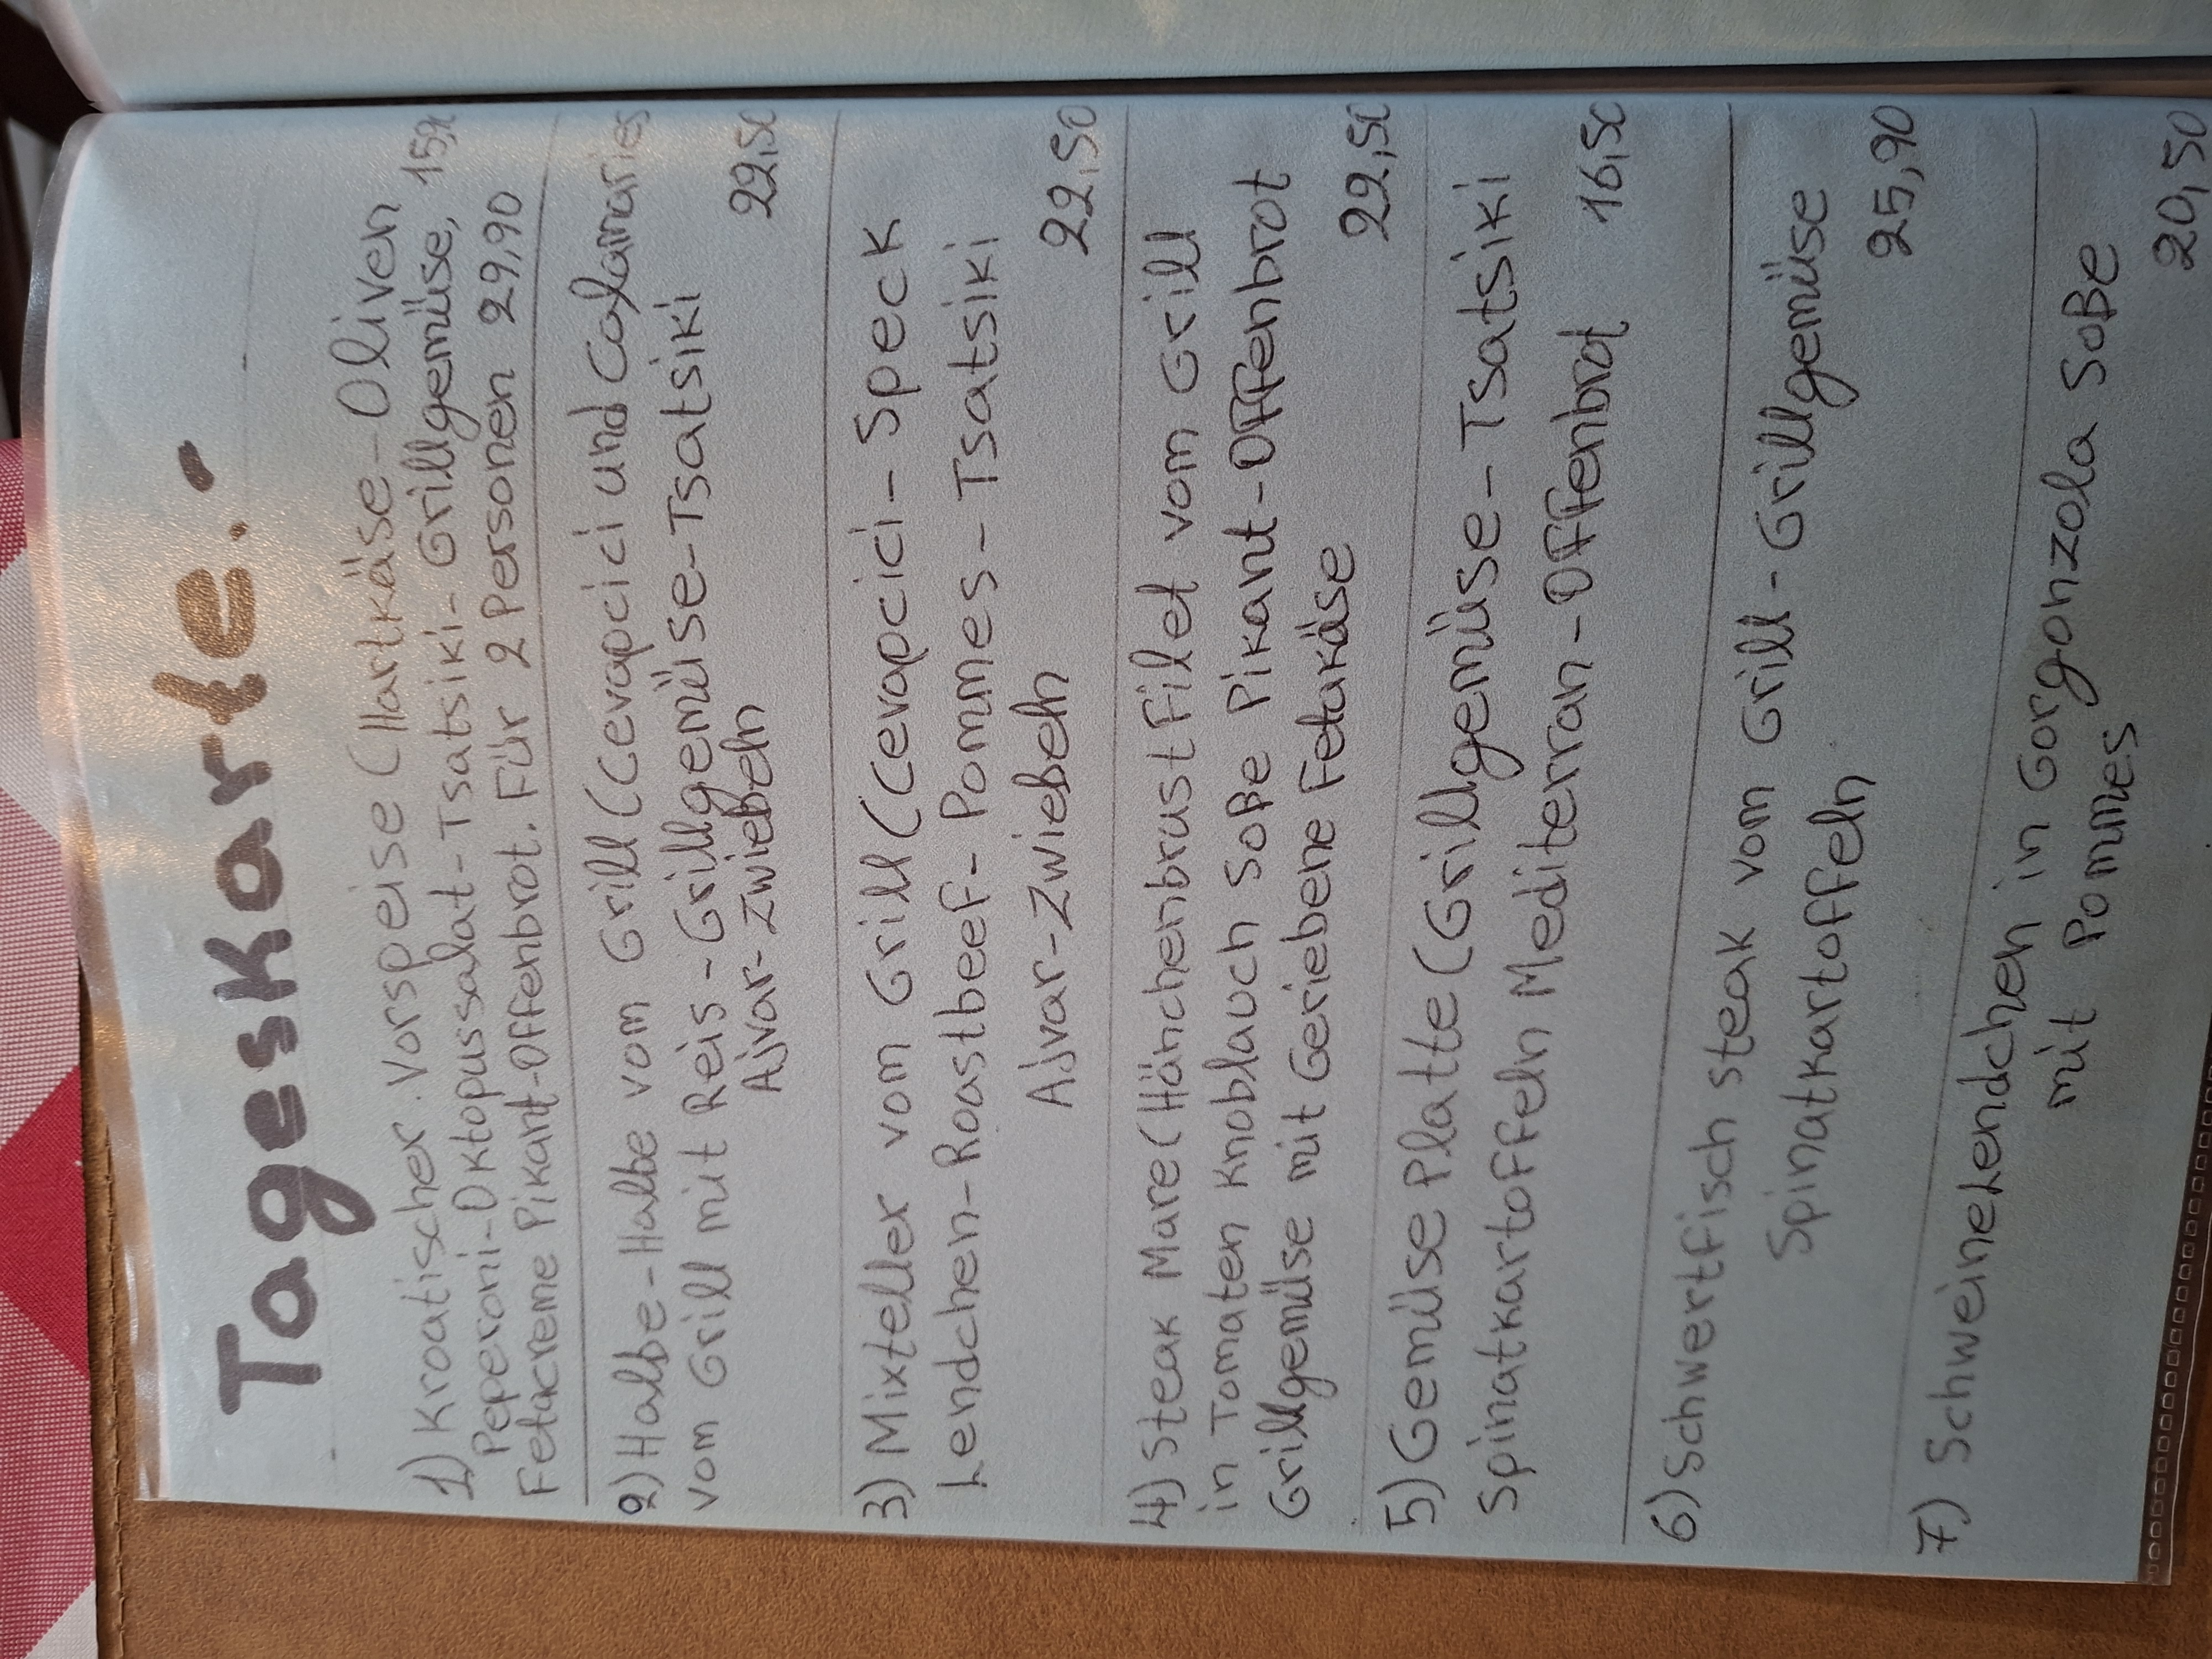 Tageskarte.
1) Kroatischer Vorspeise (Hartkäse-Oliven
Peperoni-Oktopussalat-Tsatsiki-Grillgemüse, 15,90
Fetacreme Pikant-Offenbrot. Für 2 Personen 29,90
2) Halbe-Halbe vom Grill (Cevapcici und Calamaries
vom Grill mit Reis-Grillgemüse-Tsatsiki
Ajvar-Zwiebeln 22,50
3) Mixteller vom Grill (Cevapcici-Speck
Lendchen-Roastbeef-Pommes-Tsatsiki
Ajvar-Zwiebeln 22,50
4) Steak Mare (Hänchenbrustfilet vom Grill
in Tomaten Knoblauch Soße Pikant-Offenbrot
Grillgemüse mit Geriebene Fetakäse 22,50
5) Gemüse Platte (Grillgemüse-Tsatsiki
Spinatkartoffeln Mediterran-Offenbrot 16,50
6) Schwertfisch steak vom Grill-Grillgemüse
Spinatkartoffeln 25,90
7) Schweinelendchen in Gorgonzola Soße
mit Pommes 20,50